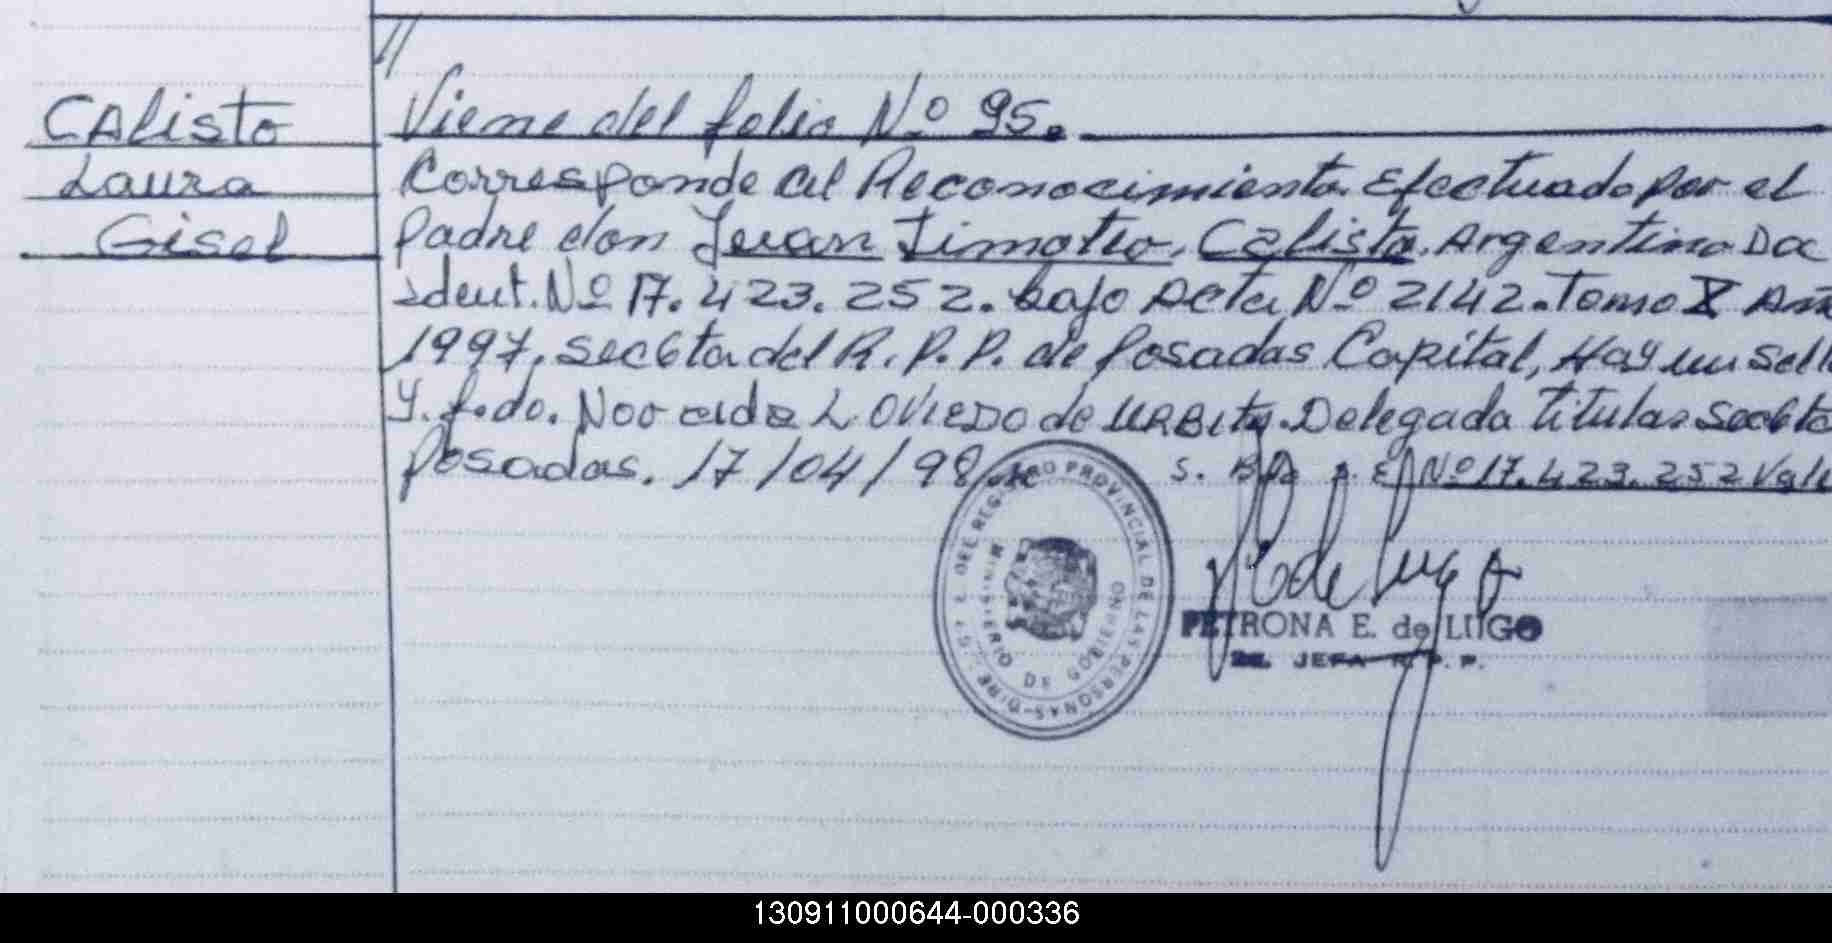 //
CAlisto
Laura
Gisel
Viene del folio Nº 95.
Corresponde al Reconocimiento Efectuado por el
Padre don Juan Timoteo, Calisto. Argentino Doc
Ident. Nº 17.423.252. bajo Acta Nº 2142. Tomo X Añ
1997, Sec 6ta del R. P. P. de Posadas Capital, Hay un Sell
y. f.do. L. OVIEDO de URBITA. Delegada titular Sec 6ta
Posadas. 17/04/98.
S. Bdo Nº 17.423.252 Vale
REGISTRO PROVINCIAL DE LAS PERSONAS
MINISTERIO DE GOBIERNO
de Lugo
PETRONA E. de LUGO
JEFA R. P. P.
130911000644-000336